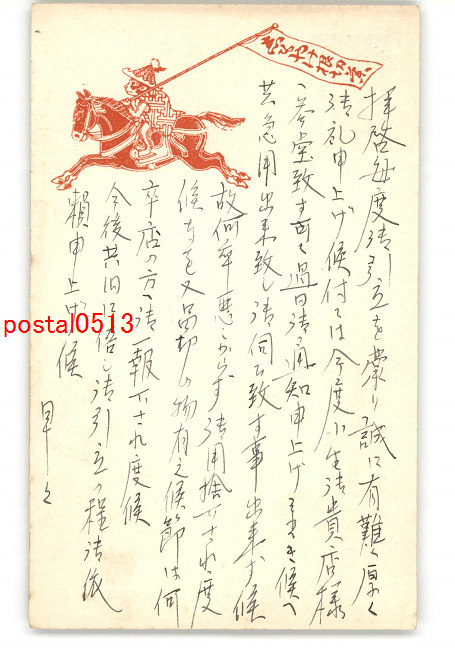 拝啓毎度御引立を蒙り誠に有難く厚く
御礼申上げ候付ては今度小生御貴店様
へ参堂致す可く過日御通知申上げ置き候へ
共急用出来致し御伺ひ致す事出来ず候
故何卒悪からず御用捨下され度
候尚を又品切れ物有之候節は何
卒店の方へ御一報下され度候
今後共旧に倍し御引立の程御依
頼申上げ候
早々
postal0513